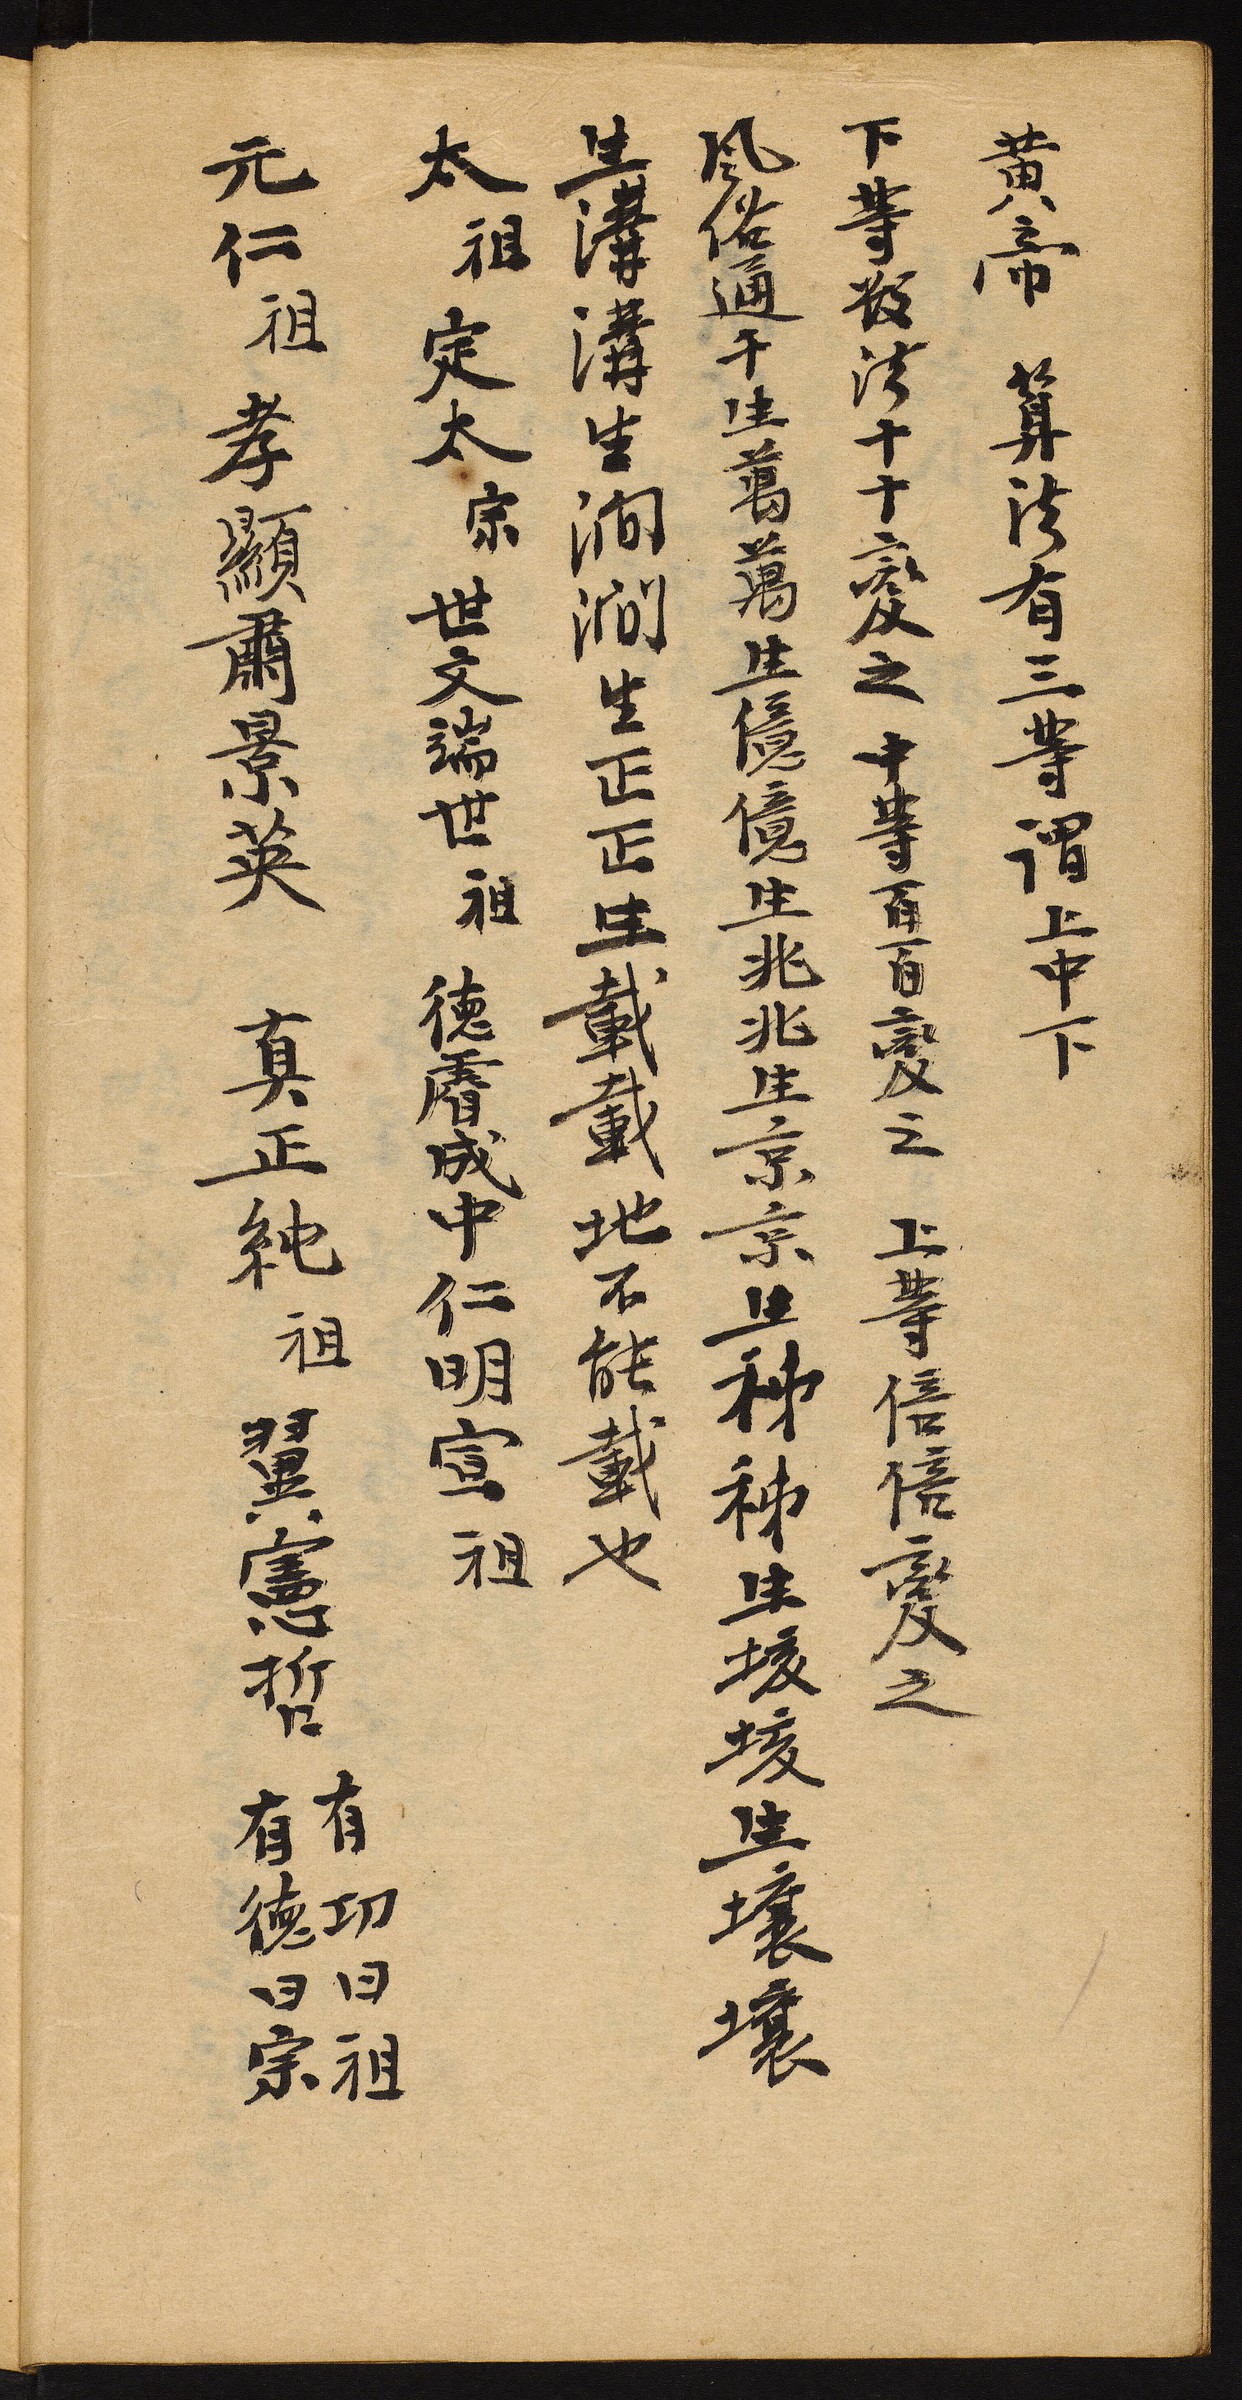 黄帝 算法有三等謂上中下
下等数法十十變之 中等百百變之 上等倍倍變之
風俗通千生萬萬生億億生兆兆生京京生秭秭生垓垓生壤壤
生溝溝生澗澗生正正生載載地不能載也
太祖定太宗世文端世祖 德睿成中仁明宣祖
元仁祖孝顯肅景英 真正純祖翼憲哲
有功曰祖
有德曰宗